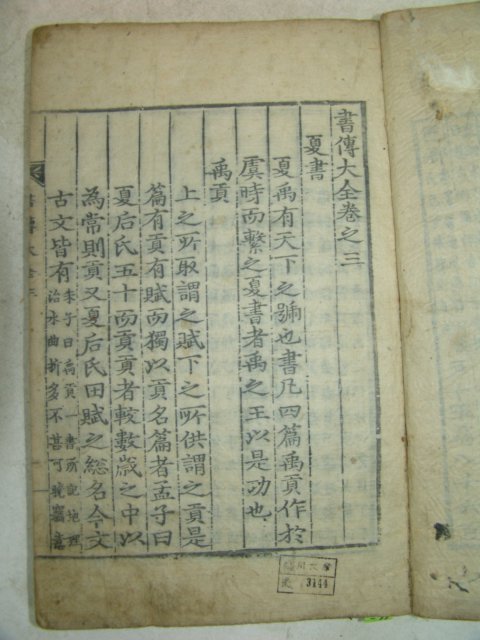 書傳大全卷之三
夏書
夏禹有天下之號也書凡四篇禹貢作於
虞時而繫之夏書者禹之王以是功也
禹貢
上之所取謂之賦下之所供謂之貢是
篇有貢有賦而獨以貢名篇者孟子曰
夏后氏五十而貢貢者較數歲之中以
為常則貢又夏后氏田賦之総名今文
古文皆有朱子曰禹貢一書所記地理
治水曲折多不甚可曉竊意
書傳大全
3144